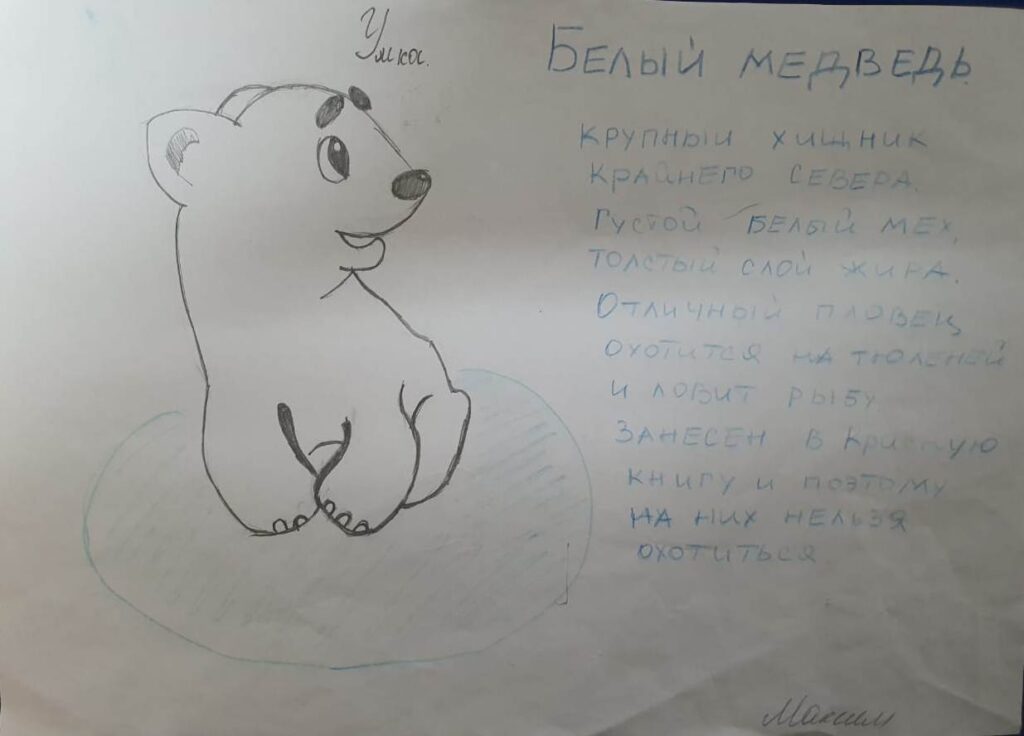 Умка.
БЕЛЫЙ МЕДВЕДЬ
КРУПНЫЙ ХИЩНИК
КРАЙНЕГО СЕВЕРА.
ГУСТОЙ БЕЛЫЙ МЕХ,
ТОЛСТЫЙ СЛОЙ ЖИРА.
ОТЛИЧНЫЙ ПЛОВЕЦ
ОХОТИТСЯ НА ТЮЛЕНЕЙ
И ЛОВИТ РЫБУ.
ЗАНЕСЕН В
КНИГУ И ПОЭТОМУ
НА НИХ НЕЛЬЗЯ
ОХОТИТЬСЯ
Максим